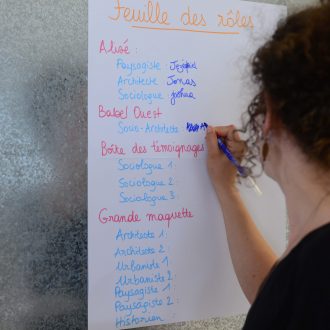 Feuille des rôles
Alizé :
Paysagiste :
Architecte : Jonas
Sociologue : Joshua
Babel Ouest
Socio-Architecte
Boîte des témoignages
Sociologue 1 :
Sociologue 2 :
Sociologue 3 :
Grande maquette
Architecte 1 :
Architecte 2 :
Urbaniste 1 :
Urbaniste 2 :
Paysagiste 1 :
Paysagiste 2 :
Historien :